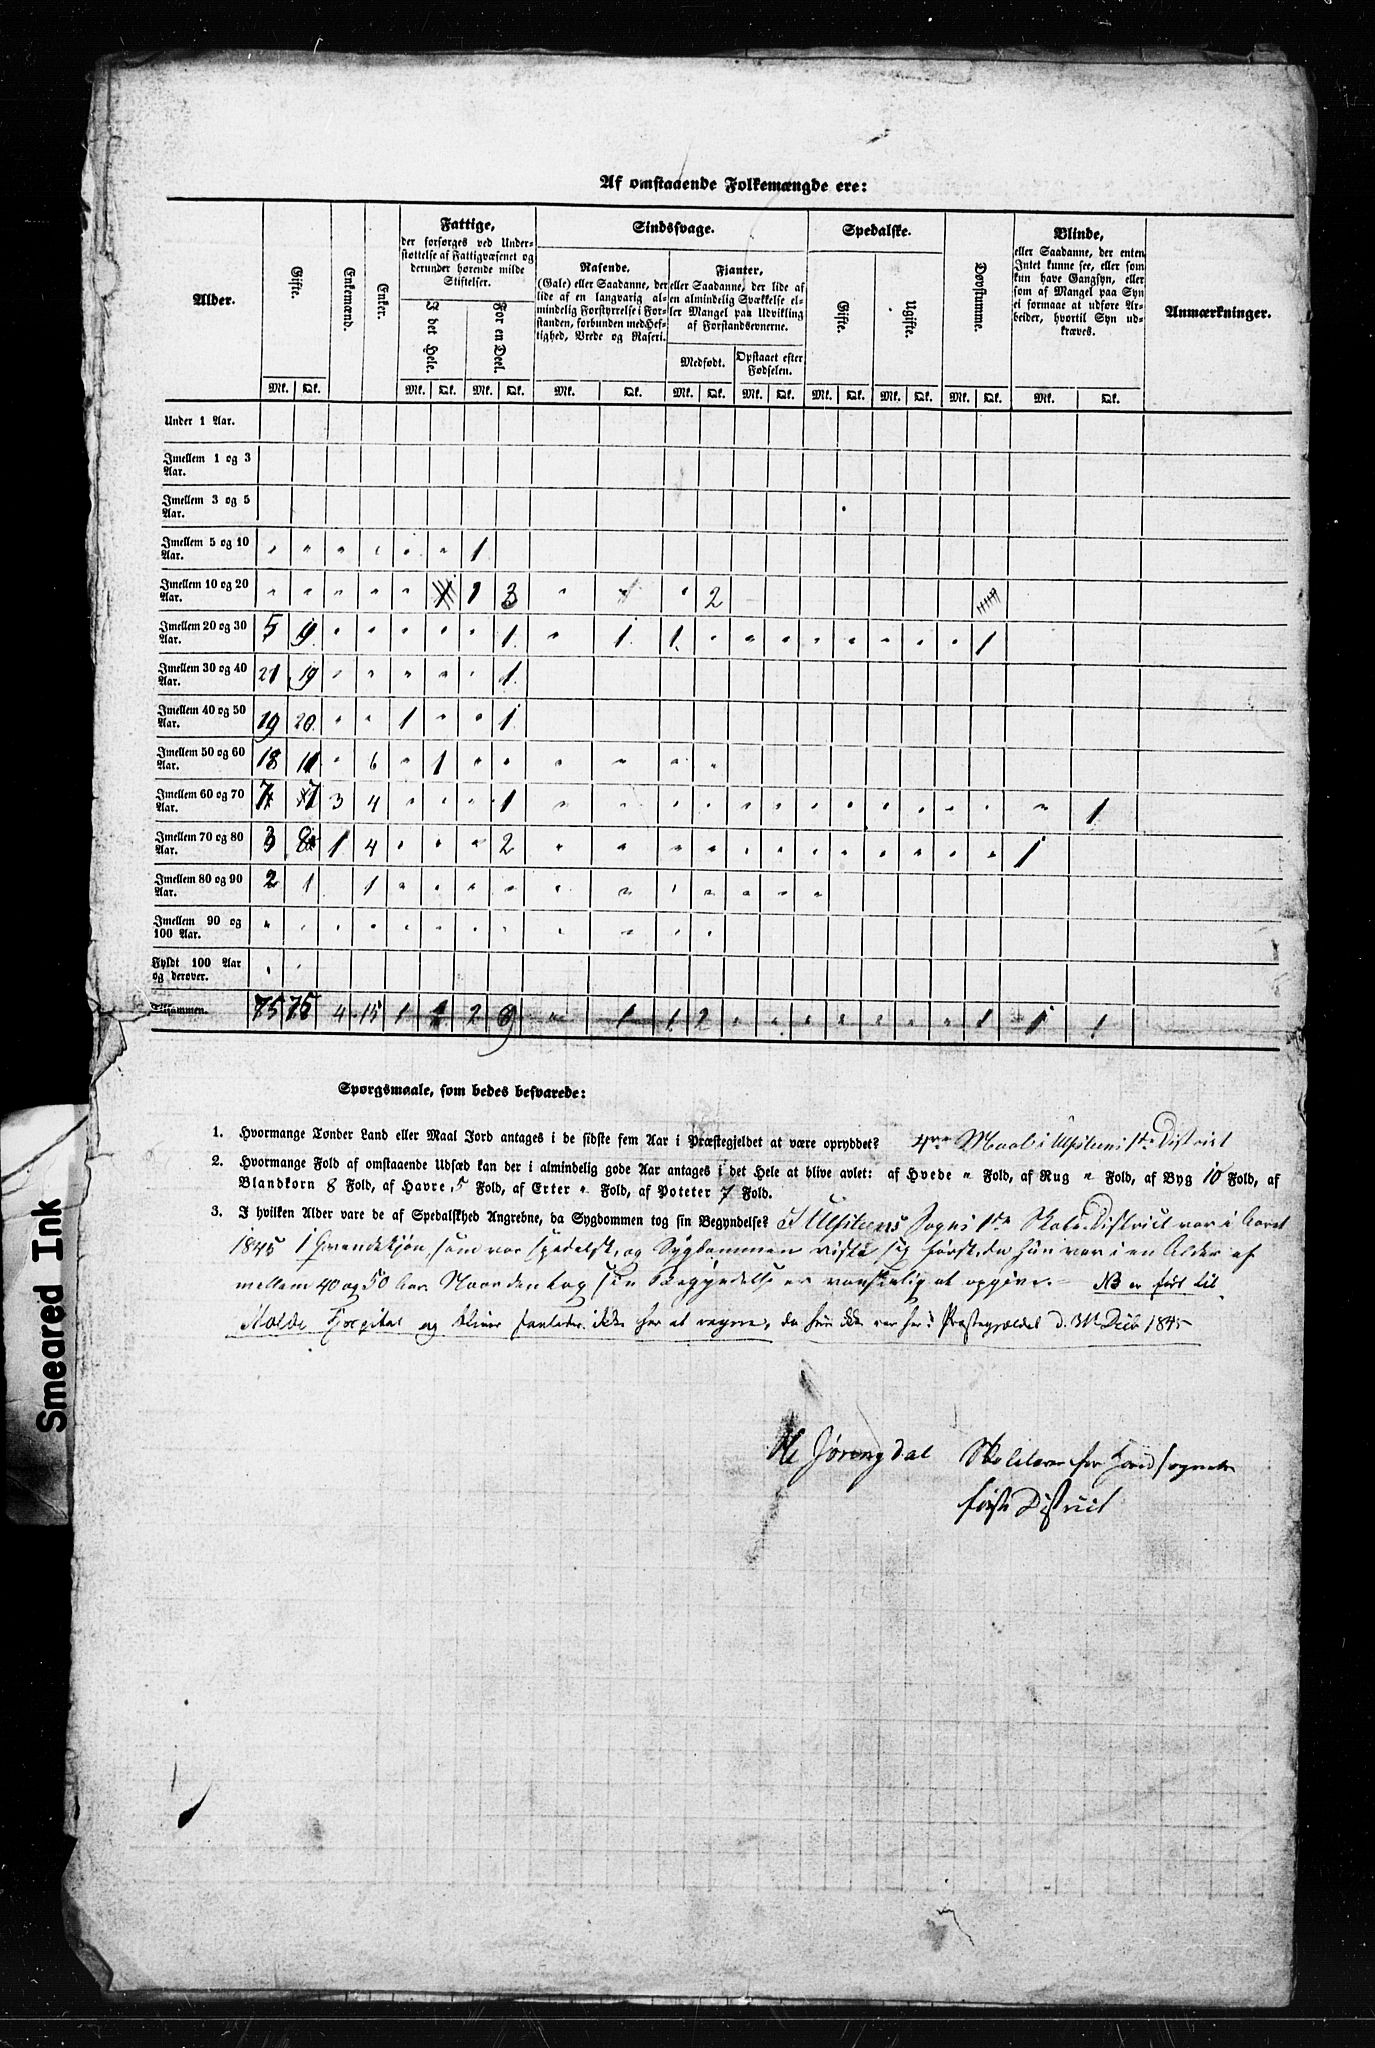 Af omstaaende Folkemængde ere:
Alder. Gifte. Enkemænd. Enker. Fattige, Sindssvage. Spedalske. Døvstumme. Blinde, Anmærkninger.
der forsørges ved Under-
støttelse af Fattigvæsenet og
derunder hørende milde
Stiftelser.
I det Hele. For en Deel.
Rasende.
(Gale) eller Saadanne, der
lide af en langvarig al-
mindelig Forstyrrelse i For-
standen, forbunden med Hef-
tighed, Vrede og Raseri.
Fjanter,
eller Saadanne, der lide af
en almindelig Svækkelse el-
ler Mangel paa Udvikling
af Forstandsevnerne.
Medfødt. Opstaaet efter
Fødselen.
Gifte. Ugifte.
eller Saadanne, der enten
Intet kunne see, eller som
kun have Gangsyn, eller
som af Mangel paa Syn
ei formaae at udføre Ar-
beider, hvortil Syn ud-
kræves.
Mk. Qk. Mk. Qk. Mk. Qk. Mk. Qk. Mk. Qk. Mk. Qk. Mk. Qk. Mk. Qk. Mk. Qk. Mk. Qk.
Under 1 Aar.
Imellem 1 og 3
Aar.
Imellem 3 og 5
Aar.
Imellem 5 og 10
Aar. " " " " " " 1
Imellem 10 og 20
Aar. " " " " " 1 3 " " 2
Imellem 20 og 30
Aar. 5 9 " " " " " 1 " 1 1 " " " " " " " " 1
Imellem 30 og 40
Aar. 21 19 " " " " " 1
Imellem 40 og 50
Aar. 19 20 " " 1 " " 1
Imellem 50 og 60
Aar. 18 11 " 6 " 1 " " " " " "
Imellem 60 og 70
Aar. 7 7 3 4 " " " 1 " " " " " " " " " " " " " 1
Imellem 70 og 80
Aar. 3 8 1 4 " " " 2 " " " " " " " " " " " " 1
Imellem 80 og 90
Aar. 2 1 1 " " " " " " " " " " "
Imellem 90 og
100 Aar. " " " " " " " " " " " "
Fyldt 100 Aar
og derover. " "
Tilsammen. 75 75 4 15 1 1 2 9 " 1 1 2 " " " " " " " 1 1 1
Spørgsmaale, som bedes besvarede:
1. Hvormange Tønder Land eller Maal Jord antages i de sidste fem Aar i Præstegjeldet at være opryddet? 4re Maal i Ulfsteens 1te District
2. Hvormange Fold af omstaaende Udsæd kan der i almindelig gode Aar antages i det Hele at blive avlet: af Hvede " Fold, af Rug " Fold, af Byg 10 Fold, af
Blandkorn 8 Fold, af Havre 5 Fold, af Erter " Fold, af Poteter 7 Fold.
3. I hvilken Alder vare de af Spedalskhed Angrebne, da Sygdommen tog sin Begyndelse? I Ulfsteens Sogns 1te Skole-District var i Aaret
1845 1 Qvindekjøn, som var spedalsk, og Sygdommen viste sig først, da hun var i en Alder af
mellem 40 og 50 Aar. Naar den tog sin Begyndelse er vanskelig at opgive. – NB er ført til
Molde Hospital og bliver saaledes ikke her at regne, da hun ikke var her i Præstegjeldet d. 31 Decb 1845
Ole Jørengdal Skolelærer for Hovedsognets
første District
Smeared Ink